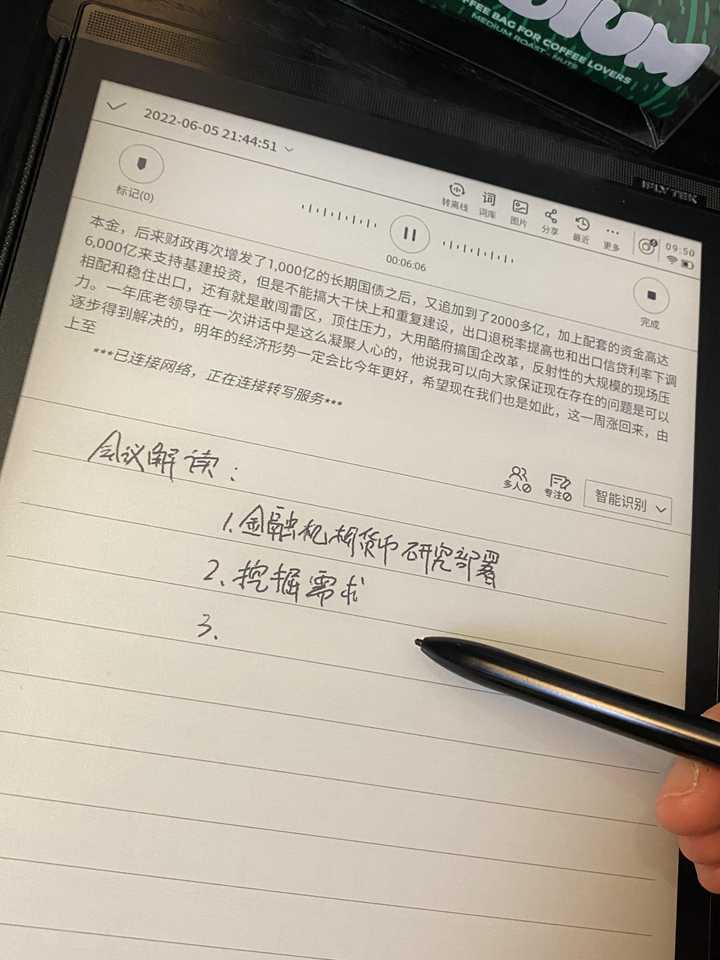 DIUM
COFFEE BAG FOR COFFEE LOVERS
MEDIUM ROAST - NUTS
iFLYTEK
2022-06-05 21:44:51
转离线 词库 图片 分享 最近 更多
09:50
标记(0)
00:06:06
完成
本金，后来财政再次增发了1,000亿的长期国债之后，又追加到了2000多亿，加上配套的资金高达
6,000亿来支持基建投资，但是不能搞大干快上和重复建设，出口退税率提高也和出口信贷利率下调
相配和稳住出口，还有就是敢闯雷区，顶住压力，大用酷府搞国企改革，反射性的大规模的现场压
力。一年底老领导在一次讲话中是这么凝聚人心的，他说我可以向大家保证现在存在的问题是可以
逐步得到解决的，明年的经济形势一定会比今年更好，希望现在我们也是如此，这一周涨回来，由
上至
***已连接网络，正在连接转写服务***
多人 专注 智能识别
会议解读：
1.金融机构货币研究部署
2.挖掘需求
3.